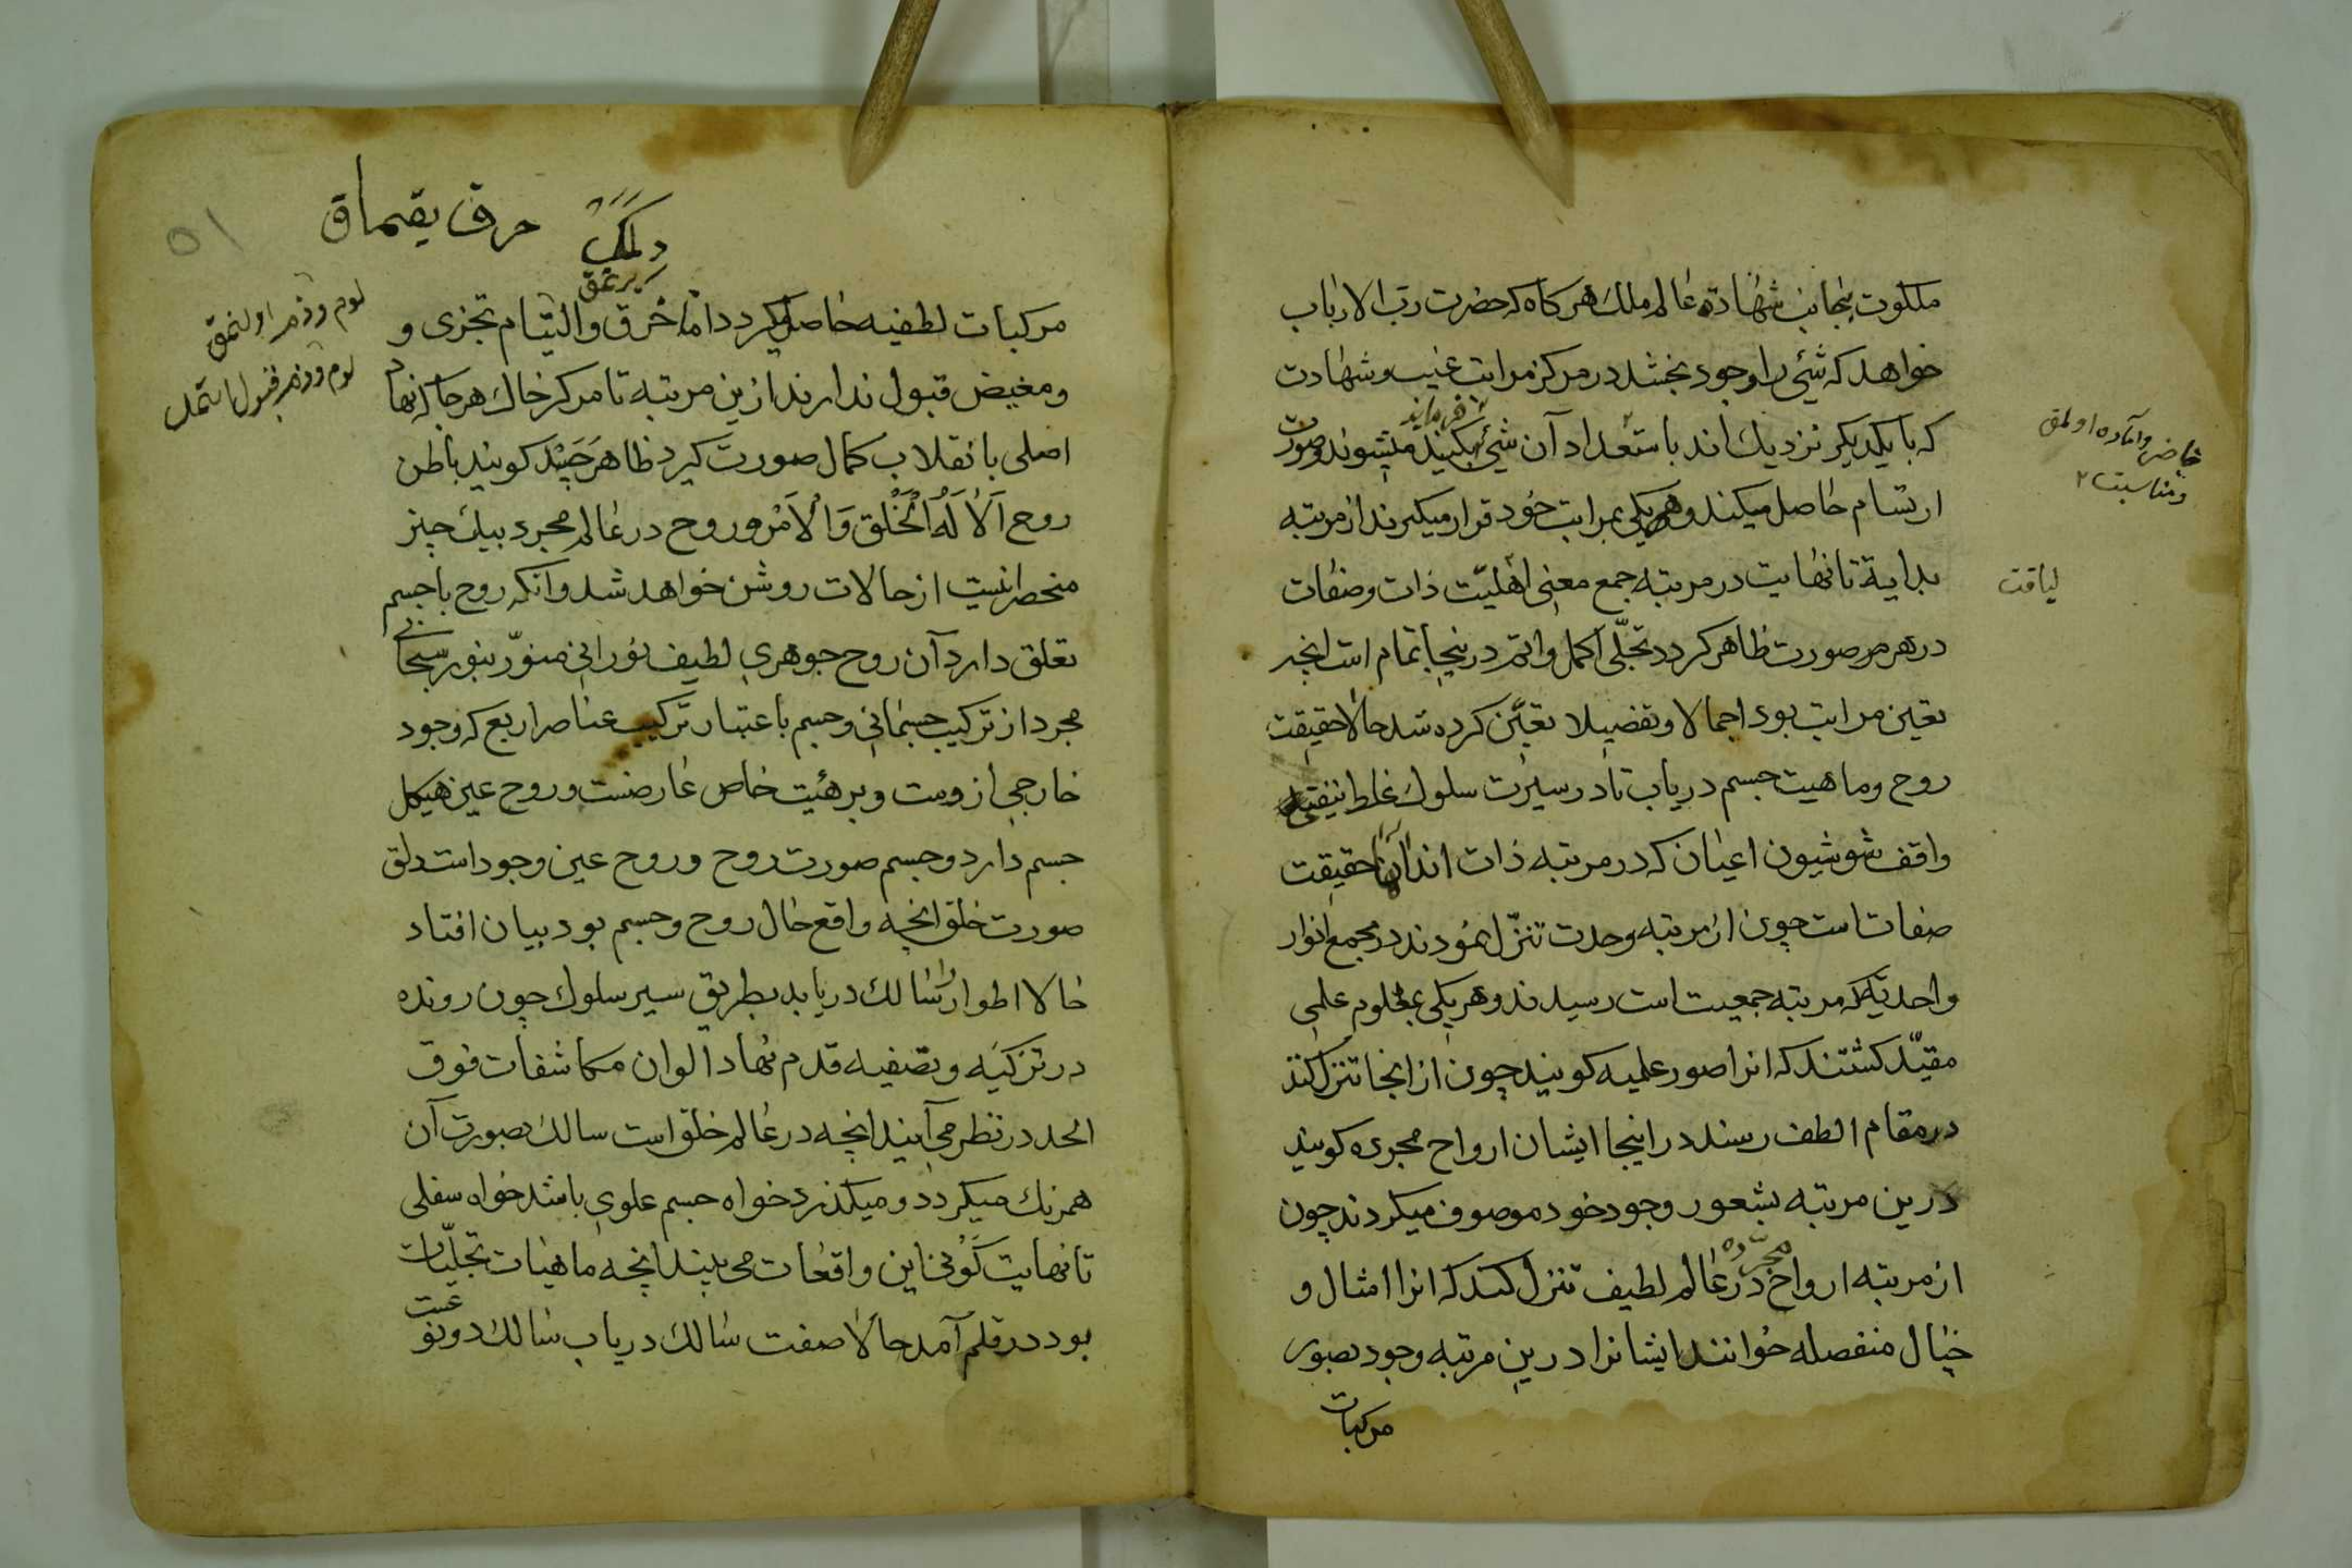 ملكوت بجانب شهادة عالم ملك هركاه كه حضرت رب الارباب
خواهد كه شئ را وجود بخشد در مركز مراتب غيب و شهادت
كه با يكديكر نزديك اند باستعداد آن شئ ميشوند و صورت
ارتسام حاصل ميكند و هر يكى بمراتب خود قرار ميكيرند از مرتبه
بداية تا نهايت در مرتبه جمع معنى اهليّت ذات و صفات
در هر صورت ظاهر كردد تجلّى اكمل و اتم درينجا تمام است انچه
تعين مراتب بود اجمالا و تفضيلا تعيّن كرده شد حالا حقيقت
روح و ماهيت جسم درياب تا در سيرت سلوك غلط نيفتى
واقف شو شيون اعيان كه در مرتبه ذات اند آن حقيقت
صفات است چون از مرتبه وحدت تنزّل نمودند در مجمع انوار
واحديّة كه مرتبه جمعيت است رسيدند و هر يكى بمعلوم علمى
مقيّد كشتند كه انرا صور علميه كويند چون از انجا تنزل كنند
در مقام الطف رسند در اينجا ايشان ارواح مجرده كويند
درين مرتبه بشعور وجود خود موصوف ميكردند چون
از مرتبه ارواح مجرّده در عالم لطيف تنزل كنند كه انرا امثال و
خيال منفصله خوانند ايشانرا درين مرتبه وجود بصور
مركبات
لياقت
حاضر و اماده اولمق
و مناسبت ۲
۵۱
حرق يقماق
مركبات لطفيه حاصل ميكردد اما خرق و التيام تجزى و
و مغيض قبول ندارند ازين مرتبه تا مركز خاك هرجا كه انها
اصلى با نقلاب كمال صورت كيرد ظاهر جسد كويند باطن
روح اَلاٰ لَهُ الْخَلْق وَالْاَمْر و روح در عالم مجرد بيك چيز
منحصر نيست از حالات روشن خواهد شد و انكه روح با جسم
تعلق دارد آن روح جوهرى لطيف نورانى منوّر بنور سبحانى
مجرد از تركيب جسمانى و جسم باعتبار تركيب عناصر اربع كه وجود
خارجى ازوست و بر هئيت خاص عارضست و روح عين هيكل
جسم دارد و جسم صورت روح و روح عين وجود است دلق
صورت خلق انچه واقع حال روح و جسم بود بيان افتاد
حالا اطوار سالك دريابد بطريق سير سلوك چون رونده
در تزكيه و تصفيه قدم نهاد الوان مكاشفات فوق
الحد در نظر مى آيند انچه در عالم خلق است سالك بصورت آن
همرنك ميكردد و ميكذرد خواه جسم علوى باشد خواه سفلى
تا نهايت كَونى اين واقعات مى بيند انچه ماهيات تجليّات
بود در قلم آمد حالا صفت سالك درياب سالك دو نوعست